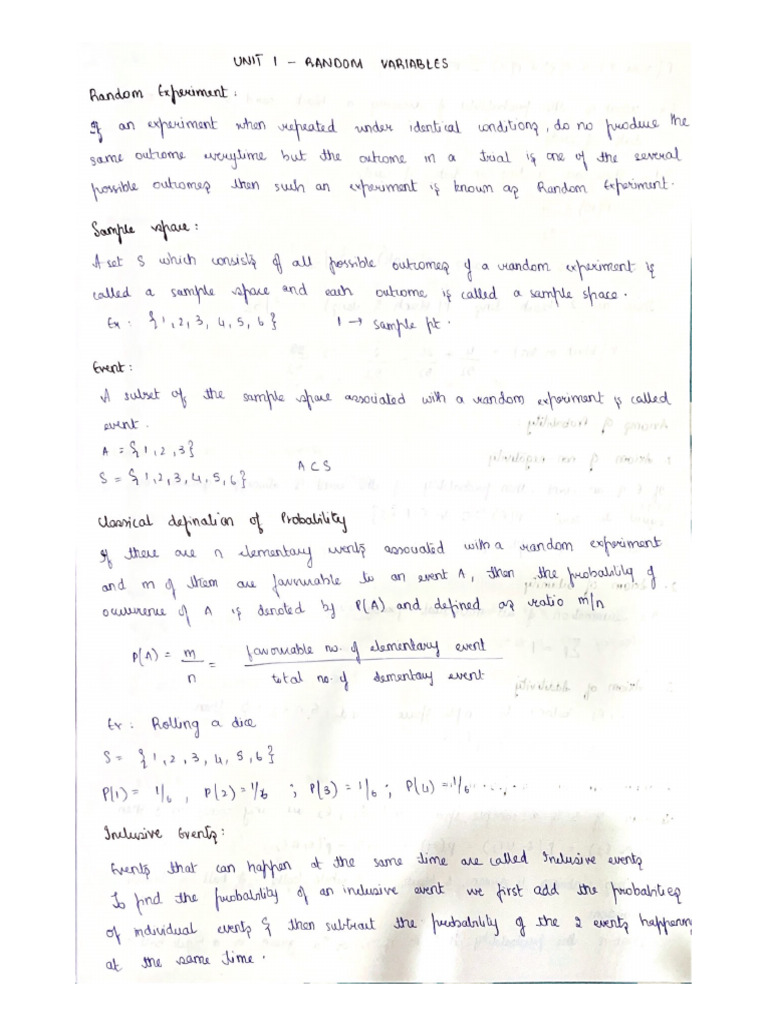 UNIT 1 - RANDOM VARIABLES
Random Experiment:
If an experiment when repeated under identical conditions, do no produce the
same outcome everytime but the outcome in a trial is one of the several
possible outcomes then such an experiment is known as Random Experiment.
Sample space:
A set S which consists of all possible outcomes of a random experiment is
called a sample space and each outcome is called a sample space.
Ex: {1,2,3,4,5,6} 1 → sample pt.
Event:
A subset of the sample space associated with a random experiment is called
event.
A = {1,2,3}
S = {1,2,3,4,5,6} A ⊂ S
Classical defination of Probability
If there are n elementary events associated with a random experiment
and m of them are favourable to an event A, then the probability of
occurrence of A is denoted by P(A) and defined as ratio m/n
P(A) = m/n = favourable no. of elementary event / total no. of elementary event
Ex: Rolling a dice
S = {1,2,3,4,5,6}
P(1) = 1/6, P(2) = 1/6; P(3) = 1/6; P(4) = 1/6 .....
Inclusive Events:
Events that can happen at the same time are called Inclusive events
To find the probability of an inclusive event we first add the probabilities
of individual events & then subtract the probability of the 2 events happening
at the same time.